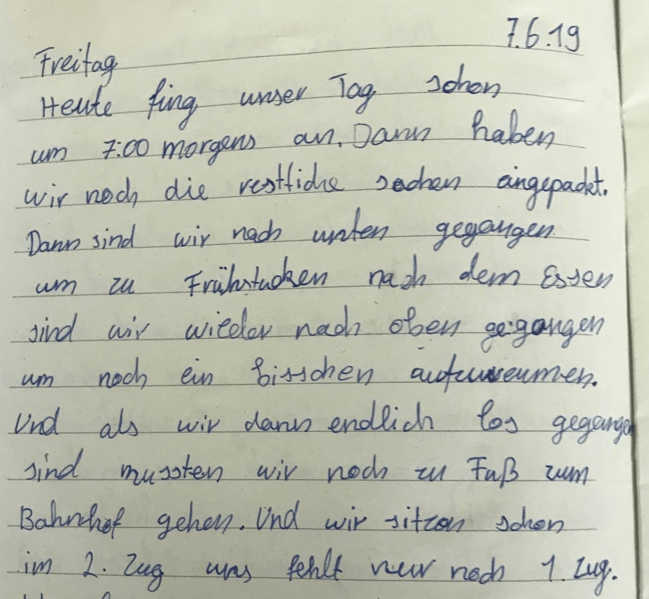 7.6.19
Freitag
Heute fing unser Tag schon
um 7:00 morgens an. Dann haben
wir noch die restliche sachen eingepackt.
Dann sind wir nach unten gegangen
um zu Frühstucken nach dem Essen
sind wir wieder nach oben gegangen
um noch ein bisschen
Und als wir dann endlich los gegangen
sind mussten wir noch zu Fuß zum
Bahnhof gehen. Und wir sitzen schon
im 2. Zug uns fehlt nur noch 1. Zug.